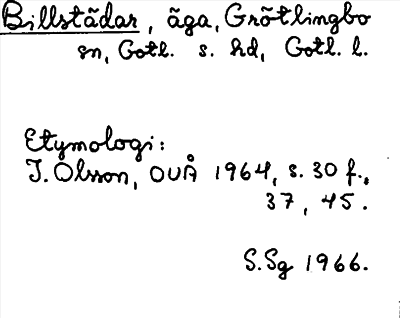 Billstädar, äga, Grötlingbo
sn, Gotl. s. hd, Gotl. l.
Etymologi:
I. Olsson, OUÅ 1964, s. 30 f.,
37, 45.
S.Sg 1966.